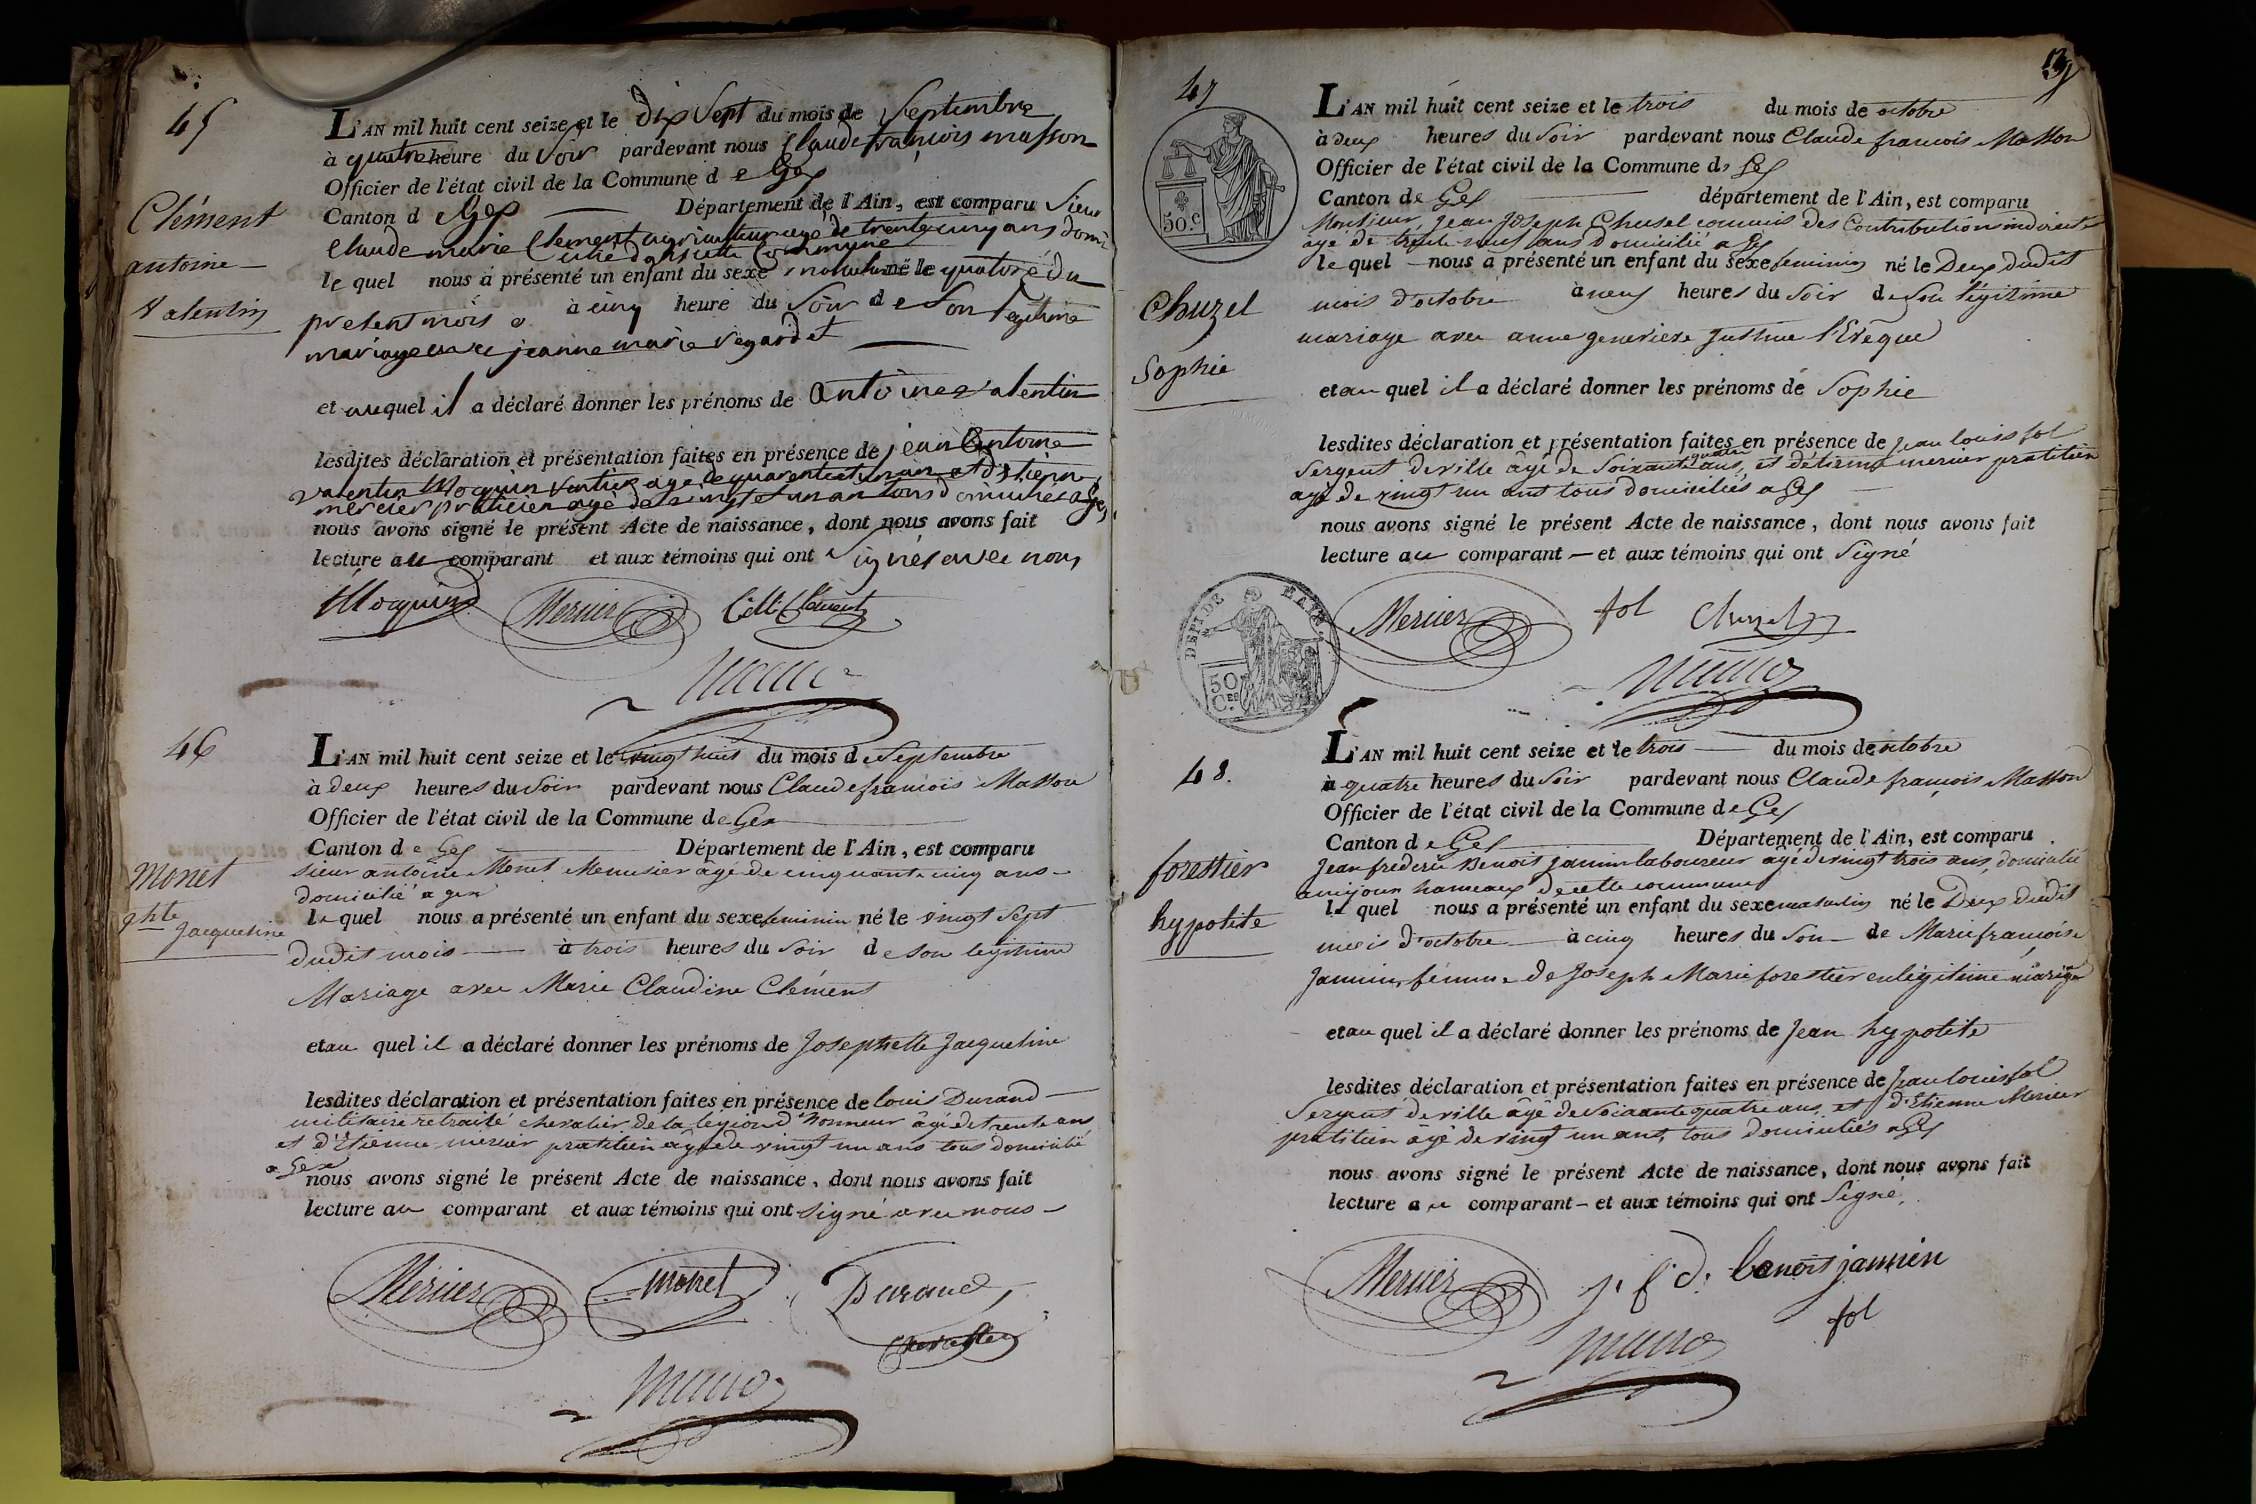 45
Clément
antoine
Valentin
L'AN mil huit cent seize et le dix Sept du mois de Septembre
à quatre heure du Soir pardevant nous Claude françois masson
Officier de l'état civil de la Commune de Gex
Canton de Gex Département de l'Ain, est comparu Sieur
Claude marie Clement agriculteur agé de trente cinq ans domi
cilié dans cette Commune
le quel nous a présenté un enfant du sexe masculin né le quatorze du
present mois à cinq heure du Soir de Son legitime
mariage avec jeanne marie regardet
et auquel il a déclaré donner les prénoms de antoine valentin
lesdites déclaration et présentation faites en présence de jean antoine
valentin Mocquin rentier agé de quarente et un an et d'étienne
mercier praticien agé de vingt et un an tous domiciliés a Gex,
nous avons signé le présent Acte de naissance, dont nous avons fait
lecture au comparant et aux témoins qui ont signés avec nous
Mocquin Mercier Clément
46
Monet
phte Jacqueline
L'AN mil huit cent seize et le vingt huit du mois de Septembre
à deux heures du Soir pardevant nous Claude francois Masson
Officier de l'état civil de la Commune de Gex
Canton de Gex Département de l'Ain, est comparu
sieur antoine Monet Menusier âgé de cinquante cinq ans
domicilié a gex
le quel nous a présenté un enfant du sexe feminin né le vingt Sept
dudit mois à trois heures du Soir de son legitime
Mariage avec Marie Claudine Clément
et au quel il a déclaré donner les prénoms de Josephette Jacqueline
lesdites déclaration et présentation faites en présence de louis Durand
militaire retraité chevalier de la légion d'honneur âgé de trente ans
et d'Etienne mercier pratitien âgé de vingt un ans tous domicilié
a Gex
nous avons signé le présent Acte de naissance, dont nous avons fait
lecture au comparant et aux témoins qui ont signé avec nous
Mercier Monet Durand
Chevallier
47
50.C
Chuzel
Sophie
L'AN mil huit cent seize et le trois du mois de octobre
à deux heures du Soir pardevant nous Claude francois Masson
Officier de l'état civil de la Commune de Gex
Canton de Gex département de l'Ain, est comparu
Monsieur Jean Joseph Chusel commis des Contributions indirectes
âgé de trente neuf ans domicilié a Gex
le quel nous a présenté un enfant du sexe feminin né le Deux dudit
mois d'octobre à neuf heures du Soir de Son légitime
mariage avec anne genevieve Justine l'Evêque
et au quel il a déclaré donner les prénoms de Sophie
lesdites déclaration et présentation faites en présence de Jean louis fol
Sergent de ville âgé de Soixante quatre ans, et d'étienne mercier pratitien
agé de vingt un ans tous domiciliés a Gex
nous avons signé le présent Acte de naissance, dont nous avons fait
lecture au comparant et aux témoins qui ont Signé
Mercier fol Chuzel
50 C.ES
48.
forestier
hypolite
L'AN mil huit cent seize et le trois du mois de octobre
à quatre heures du Soir pardevant nous Claude françois Masson
Officier de l'état civil de la Commune de Gex
Canton de Gex Département de l'Ain, est comparu
Jean frederic Benoit Janin laboureur âgé de vingt trois ans, domicilié
hameaux de cette commune
le quel nous a présenté un enfant du sexe masculin né le Deux dudit
mois d'octobre à cinq heures du Soir de Marie françoise
Janin, femme de Joseph Marie forestier en légitime mariage
et au quel il a déclaré donner les prénoms de Jean hypolite
lesdites déclaration et présentation faites en présence de Jean louis fol
Sergent de ville âgé de Soixante quatre ans, et d'Etienne Mercier
pratitien âgé de vingt un ans, tous domiciliés a Gex
nous avons signé le présent Acte de naissance, dont nous avons fait
lecture au comparant et aux témoins qui ont Signé.
Mercier j. f. d. benoit jannin
fol